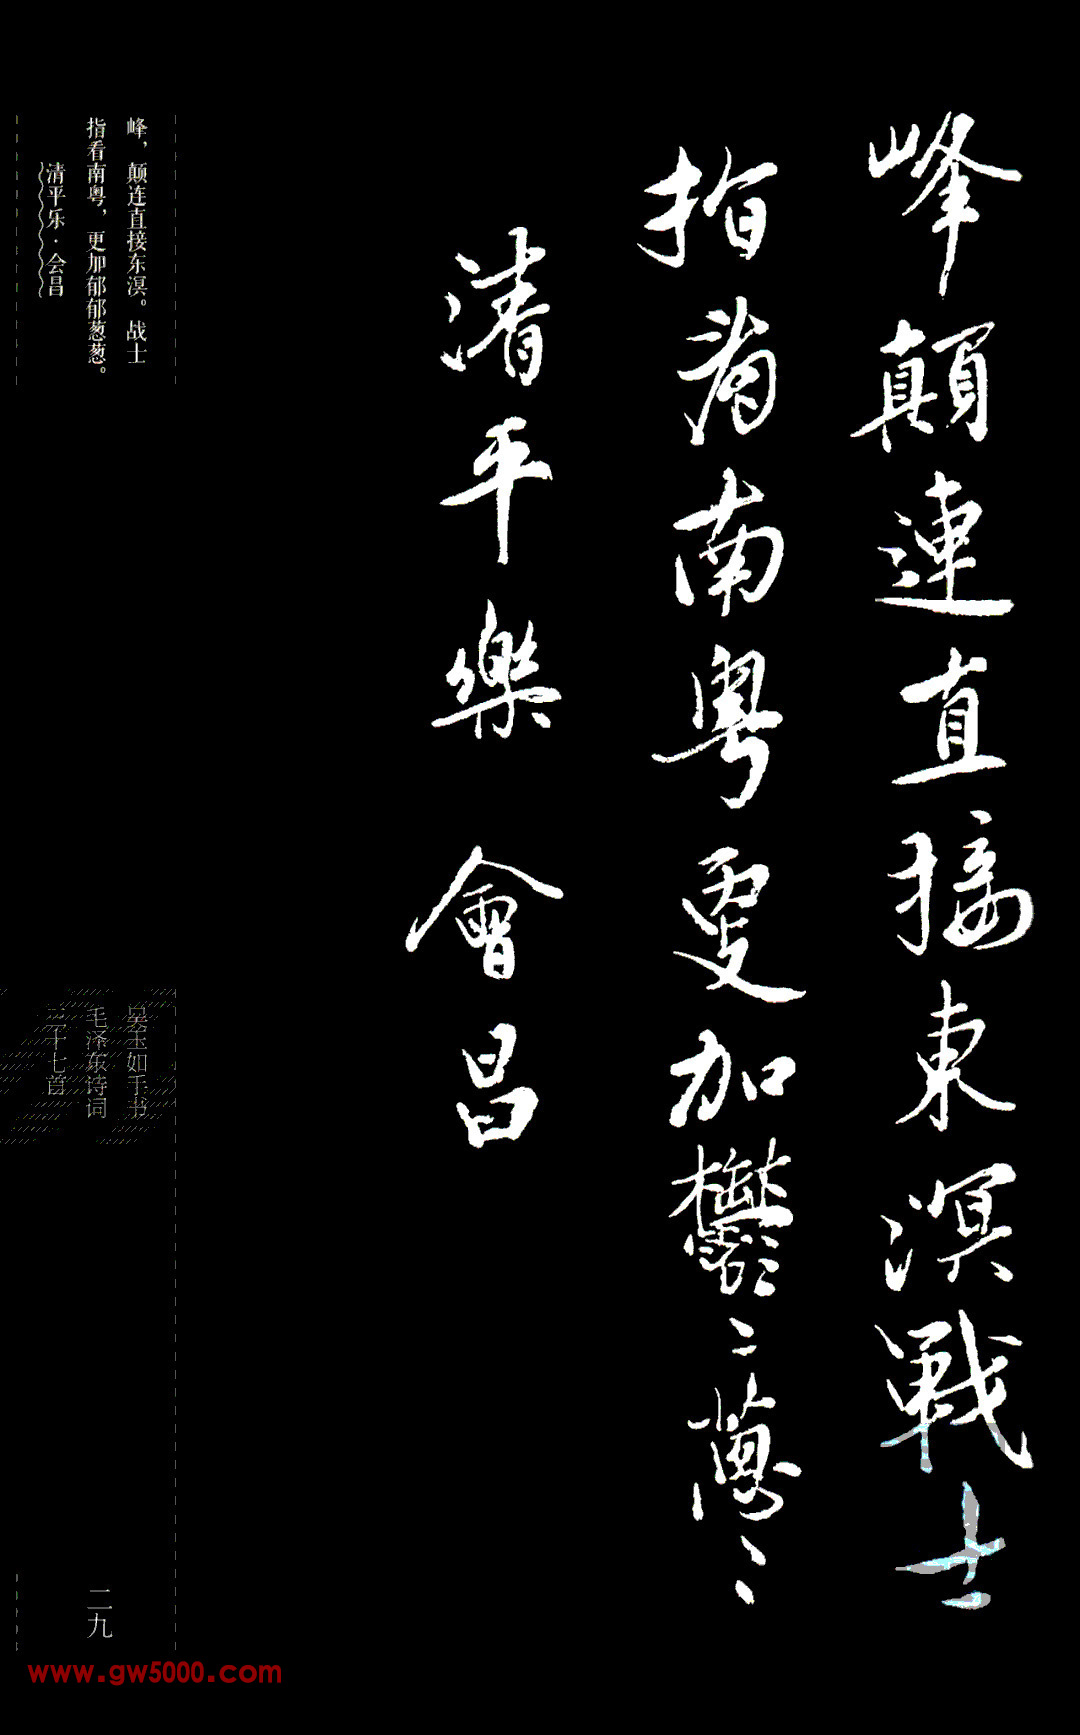 峰顛連直接東溟戰士
指看南粵更加鬱〻蔥〻
清平樂 會昌
峰，颠连直接东溟。战士
指看南粤，更加郁郁葱葱。
清平乐·会昌
吴玉如手书
毛泽东诗词
三十七首
二九
www.gw5000.com